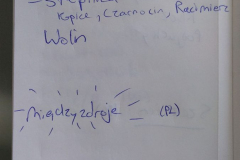 Kopice, Czarnocin, Racimierz
Wolin
- Międzyzdroje - (PL)